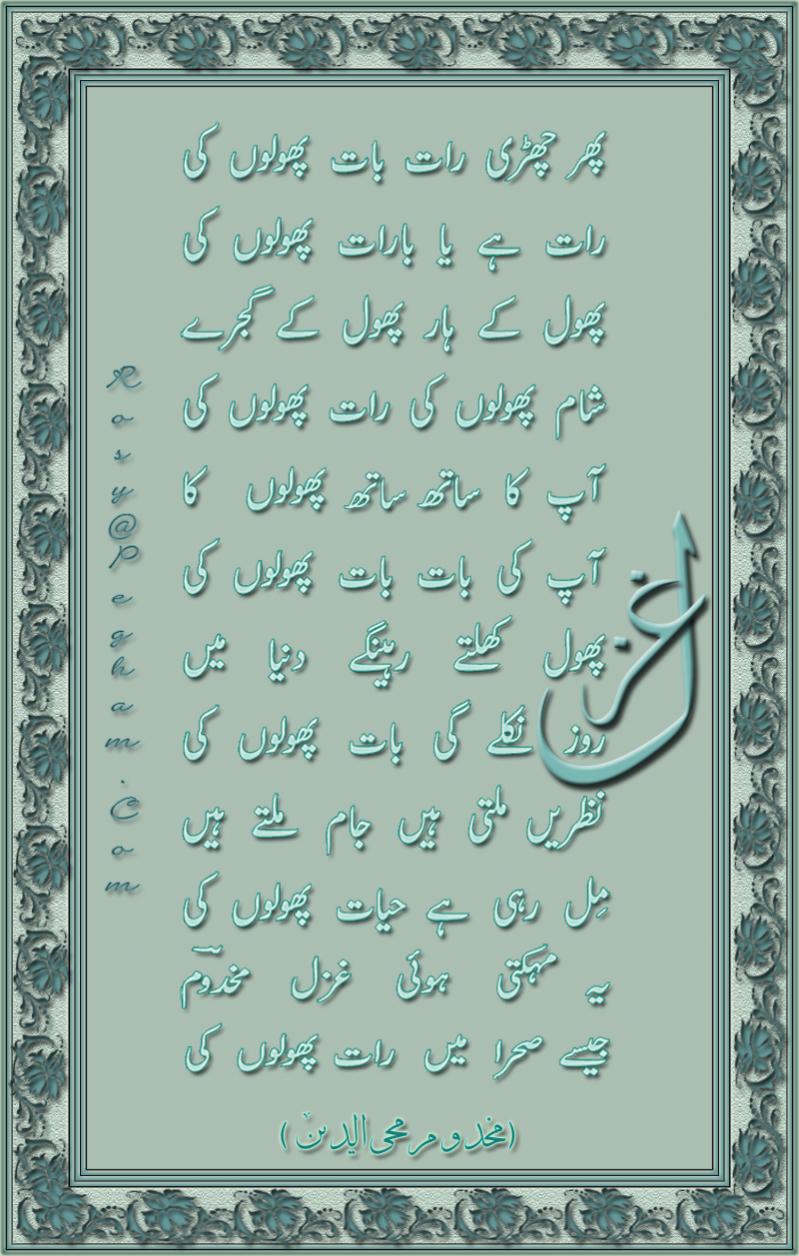 پھر چھڑی رات بات پھولوں کی
رات ہے یا بارات پھولوں کی
پھول کے ہار پھول کے گجرے
شام پھولوں کی رات پھولوں کی
آپ کا ساتھ ساتھ پھولوں کا
آپ کی بات بات پھولوں کی
پھول کھلتے رہینگے دنیا میں
روز نکلے گی بات پھولوں کی
نظریں ملتی ہیں جام ملتے ہیں
مِل رہی ہے حیات پھولوں کی
یہ مہکتی ہوئی غزل مخدوؔم
جیسے صحرا میں رات پھولوں کی
(مخدوم محی الدین)
غزل
Rosy@Pegham.Com